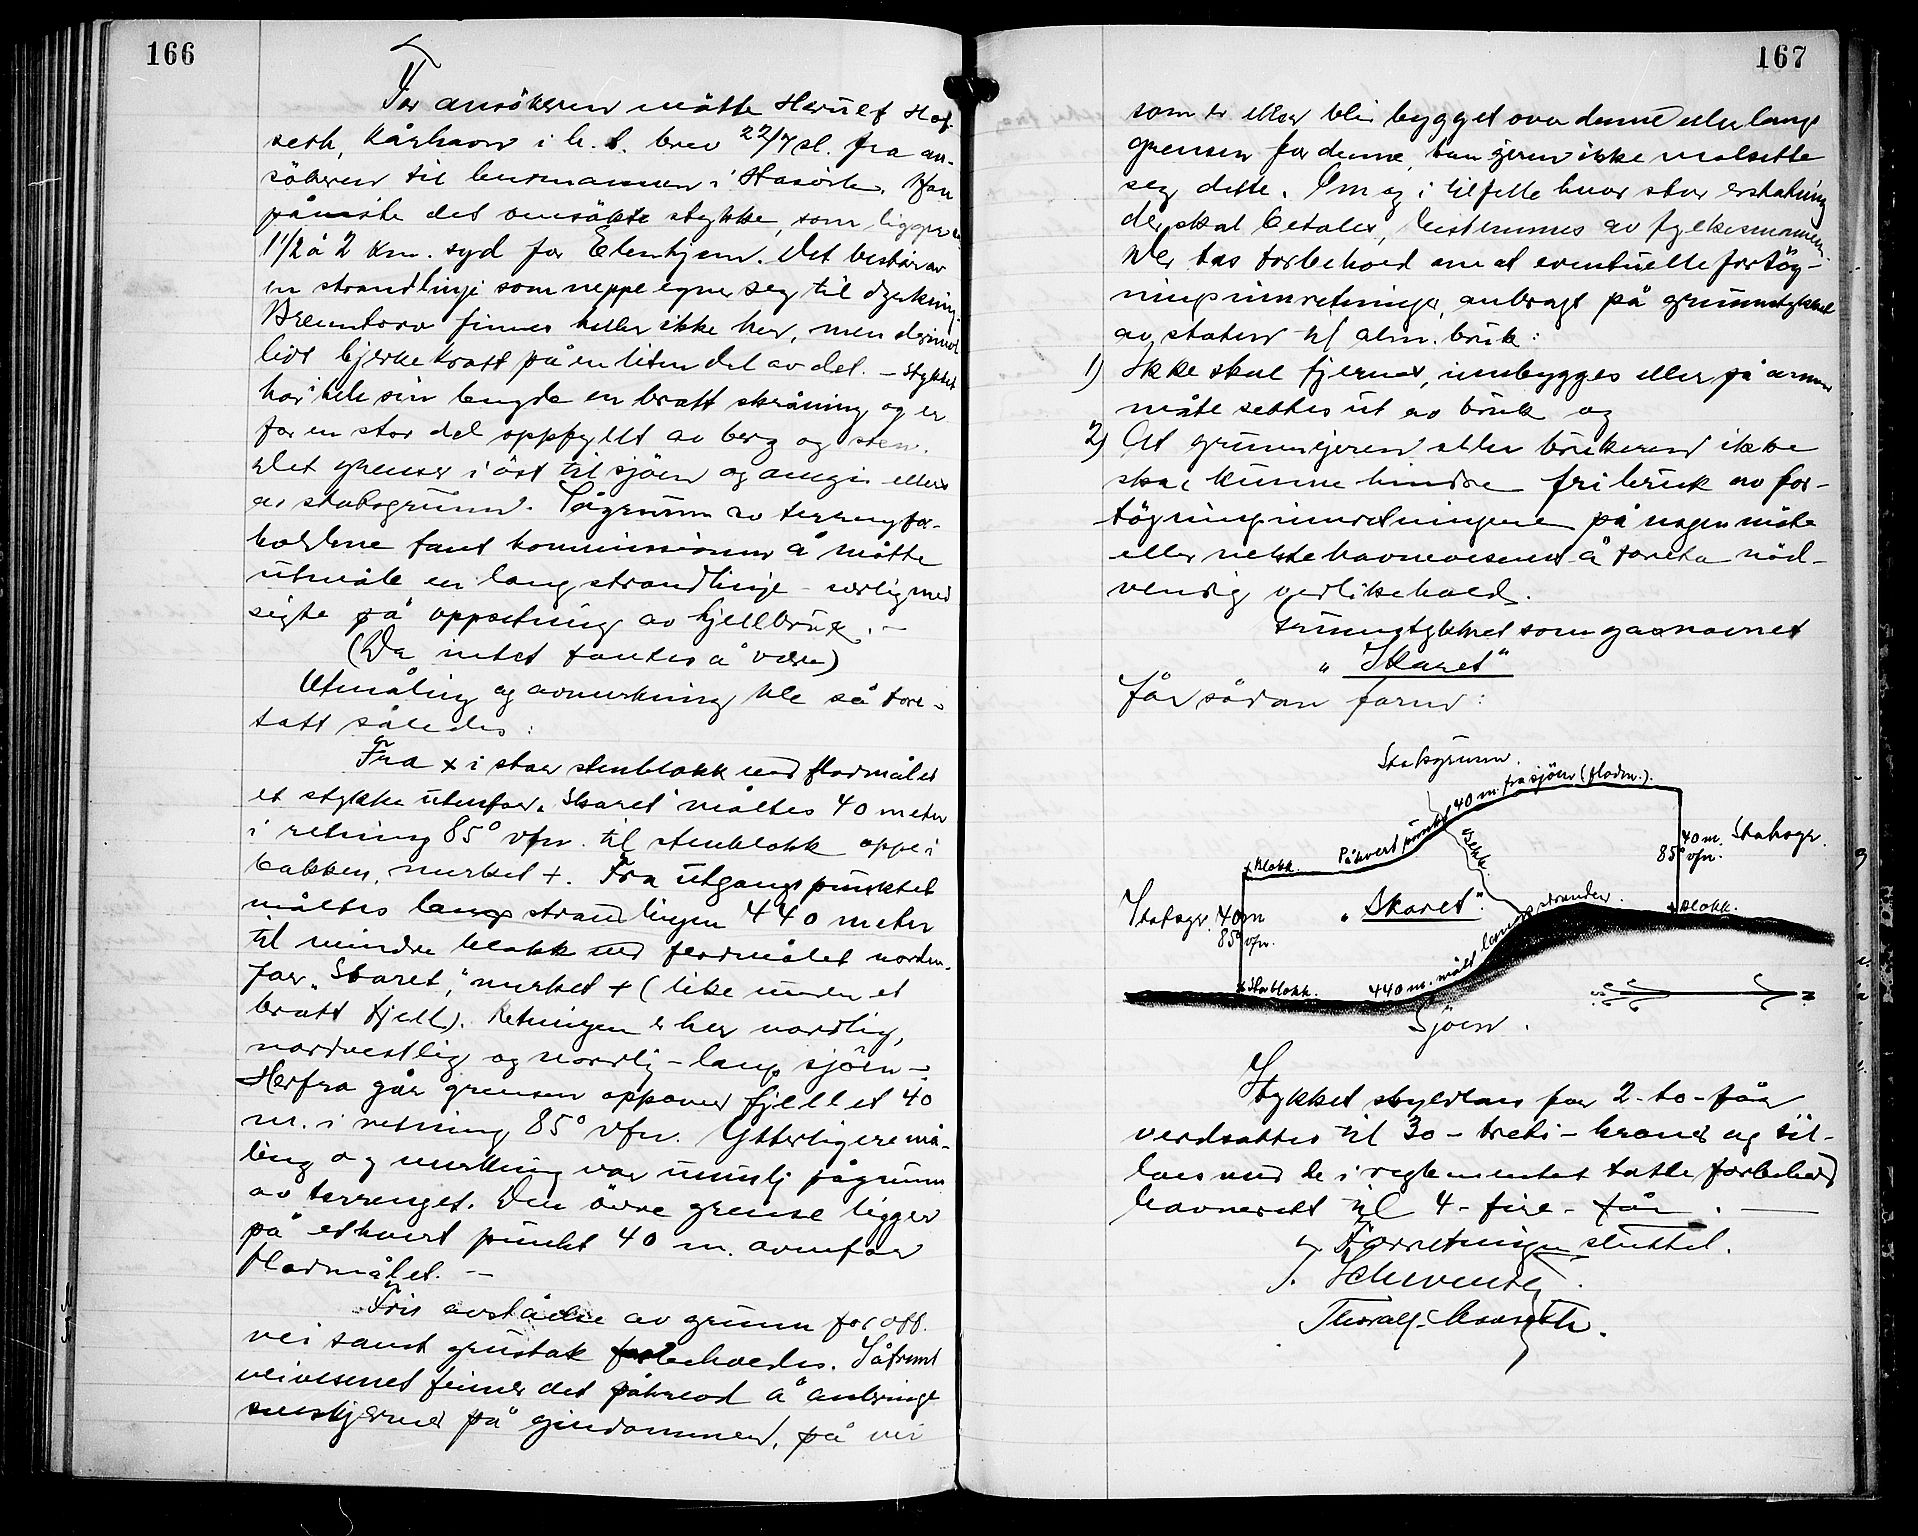 166
For ansökeren mötte Herulf Hof-
seth, Kårhavn i h. t. brev 22/7 sl. fra an-
sökeren til lensmannen i Hasvik. Han
påviste det omsökte stykke, som ligger
1 1/2 à 2 km. syd for . Det består av
en strandlinje som neppe egner seg til dyrkning.
Brenntorv finnes heller ikke her, men derimot
litt bjerkekratt på en liten del av det. - Stykket
har i hele sin lengde en bratt skråning og er
for en stor del oppfyllt av berg og sten.
Det grenser i öst til sjöen og omgis ellers
av statsgrunn. Pågrunn av terrengfor-
holdene fant kommissionen å måtte
utmåle en lang strandlinje - særlig med
sigte på oppsetning av fjellbruk. -
(Da intet fantes å være)
Utmåling og avmerkning ble så fore-
tatt således:
Fra x i stor stenblokk ved flodmålet
et stykke utenfor "Skaret" måltes 40 meter
i retning 85° vfn. til stenblokk oppe i
bakken, merket +. Fra utgangspunktet
måltes langs strandlinjen 440 meter
til mindre blokk ved flodmålet norden-
for "Skaret", merket + (like under et
bratt fjell). Retningen er her nordlig,
nordvestlig og nordlig - langs sjöen -.
Herfra går grensen oppover fjellet 40
m. i retning 85° vfn. Ytterligere må-
ling og merking var umulig pågrunn
av terrenget. Den övre grense ligger
på ethvert punkt 40 m. ovenfor
flodmålet. -
Fri avståelse av grunn for off.
vei samt grustak forbeholdes. Såfremt
veivesenet finner det påkrevd å anbringe
sneskjermer på eiendommen, på vei
167
som er eller blir bygget over denne eller langs
grensen for denne, kan eieren ikke motsette
seg dette. Om og i tilfelle hvor stor erstatning
der skal betales, bestemmes av fylkesmannen.
Der tas forbehold om at eventuelle fortöy-
ningsinnretninger, anbragt på grunnstykket
av staten til alm. bruk:
1) Ikke skal fjernes, innbygges eller på annen
måte settes ut av bruk og
2) At grunneieren eller brukeren ikke
skal kunne hindre fri bruk av for-
töyningsinnretningene på nogen måte
eller nekte havnevesenet å foreta nöd-
vendig vedlikehold.
Grunnstykket som ga navnet
"Skaret"
får sådan form:
Statsgrunn.
40 m. fra sjöen (flodm.).
På hvert punkt
Bekk.
+ Blokk.
40 m. Statsgr.
85° vfn.
Statsgr. 40 m
85° vfn.
"Skaret"
+ Blokk.
440 m. målt langs stranden.
x Stor blokk.
Sjöen.
Stykket skyldlas for 2 - to - öre
verdsattes til 30 - tretti - kroner og til-
loes med de i reglementet tatte forbehold
havneratt til 4 - fire - får. -
Forretningen sluttet.
J. Schwenke.
Thoralf